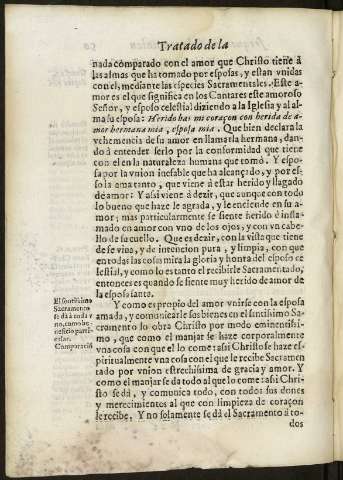 Tratado de la
nada comparado con el amor que Christo tiene à
las almas que ha tomado por esposas, y estan vnidas
con el, mediante las especies Sacramentales. Este a-
mor es el que significa en los Cantares este amoroso
Señor, y esposo celestial diziendo a la Iglesia y al al-
ma su esposa: Herido has mi coraçon con herida de a-
mor hermana mia, esposa mia. Que bien declara la
vehemencia de su amor en llamarla hermana, dan-
do à entender serlo por la conformidad que tiene
con el en la naturaleza humana que tomò. Y espo-
sa por la vnion inefable que ha alcançado, y por es-
so la ama tanto, que viene à estar herido y llagado
de amor: Y assi viene à dezir, que aunque con todo
lo bueno que haze le agrada, y le enciende en su a-
mor; mas particularmente se siente herido è infla-
mado en amor con vno de los ojos, y con vn cabe-
llo de su cuello. Que es dezir, con la vista que tiene
de fe viua, y de intencion pura, y limpia, con que
en todas las cosas mira la gloria y honra del esposo ce
lestial, y como lo es tanto el recibirle Sacramentado,
entonces es quando se siente muy herido de amor de
la esposa santa.
Y como es propio del amor vnirse con la esposa
amada, y comunicarle sos bienes en el santissimo Sa-
cramento lo obra Christo por modo eminentissi-
mo, que como el manjar se haze corporalmente
vna cosa con que el lo come: assi Christo se haze es-
piritualmente vna cosa con el que le recibe Sacramen
tado por vnion estrechissima de gracia y amor. Y
como el manjar se da todo al que lo come: assi Chri-
sto se dà, y comunica todo, con todos sus dones
y merecimientos al que con limpieza de coraçon
le recibe. Y no solamente se dà el Sacramento à to-
dos
El santissimo
Sacramento
se dà a cada v
no, como be-
neficio parti-
cular.
Comparaciō